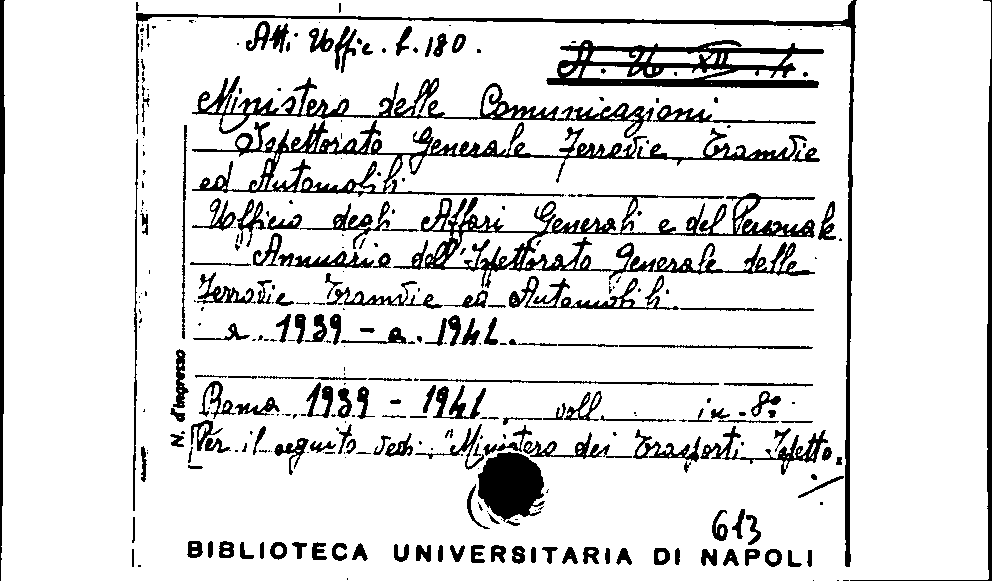 Atti Uffic. L. 180.
A. U. XII. 4.
Ministero delle Comunicazioni
Ispettorato Generale Ferrovie, Tramvie
ed Automobili.
Ufficio degli Affari Generali e del Personale.
Annuario dell'Ispettorato Generale delle
Ferrovie Tramvie ed Automobili.
a. 1939 - a. 1941.
N. d'ingresso
Roma, 1939 - 1941, voll. in-8º
[Per il seguito vedi: "Ministero dei Trasporti. Ispetto=
613
BIBLIOTECA UNIVERSITARIA DI NAPOLI